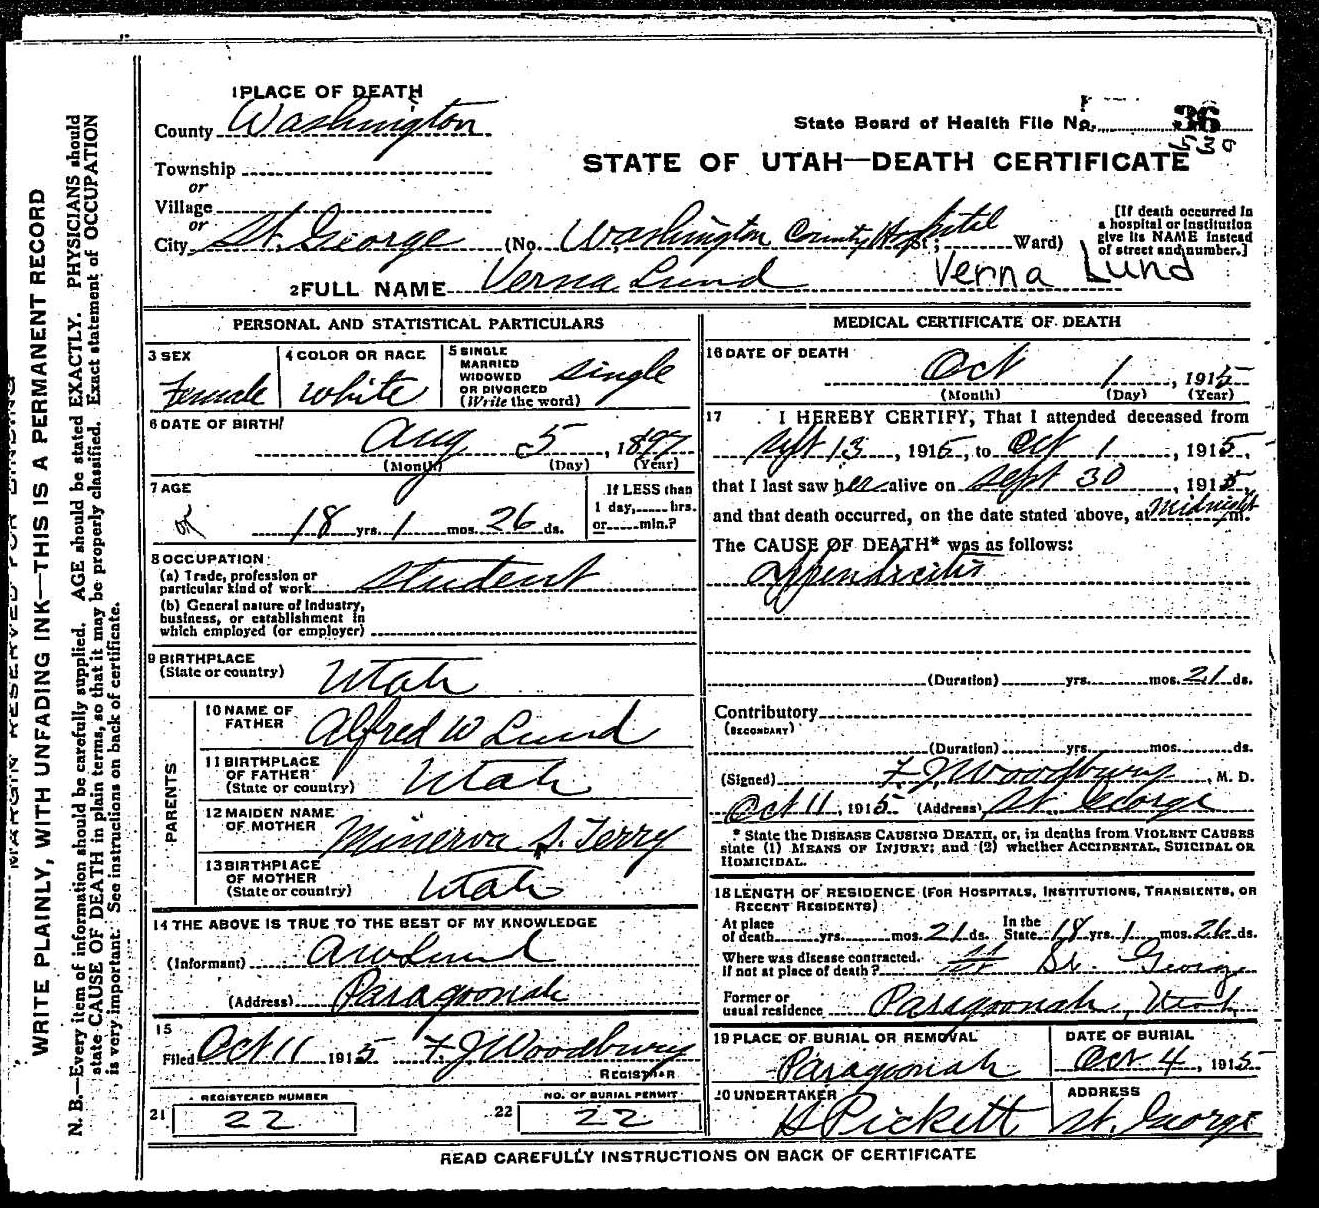 1 PLACE OF DEATH
County Washington
State Board of Health File No. 36
STATE OF UTAH—DEATH CERTIFICATE
Township
or
Village
or
City St. George (No. Washington County Hospital St; Ward)
[If death occurred in a hospital or institution give its NAME instead of street and number.]
2 FULL NAME Verna Lund Verna Lund
PERSONAL AND STATISTICAL PARTICULARS
3 SEX
Female
4 COLOR OR RACE
white
5 SINGLE MARRIED WIDOWED OR DIVORCED (Write the word)
single
6 DATE OF BIRTH
Aug 5, 1897
(Month) (Day) (Year)
7 AGE
18 yrs. 1 mos. 26 ds.
If LESS than 1 day, hrs. or min.?
8 OCCUPATION
(a) Trade, profession or particular kind of work student
(b) General nature of industry, business, or establishment in which employed (or employer)
9 BIRTHPLACE
(State or country) Utah
PARENTS
10 NAME OF FATHER Alfred W Lund
11 BIRTHPLACE OF FATHER (State or country) Utah
12 MAIDEN NAME OF MOTHER Minerva S. Terry
13 BIRTHPLACE OF MOTHER (State or country) Utah
14 THE ABOVE IS TRUE TO THE BEST OF MY KNOWLEDGE
(Informant) A W Lund
(Address) Paragoonah
15
Filed Oct 11 1915 F J Woodbury
REGISTRAR
REGISTERED NUMBER
21 22
NO. OF BURIAL PERMIT
22 22
MEDICAL CERTIFICATE OF DEATH
16 DATE OF DEATH
Oct 1, 1915
(Month) (Day) (Year)
17 I HEREBY CERTIFY, That I attended deceased from
Sept 13, 1915, to Oct 1, 1915,
that I last saw her alive on Sept 30, 1915,
and that death occurred, on the date stated above, at Midnight m.
The CAUSE OF DEATH* was as follows:
Appendicitis
(Duration) yrs. mos. 21 ds.
Contributory
(SECONDARY)
(Duration) yrs. mos. ds.
(Signed) F. J. Woodbury, M. D.
Oct 11, 1915 (Address) St. George
* State the DISEASE CAUSING DEATH, or, in deaths from VIOLENT CAUSES
state (1) MEANS OF INJURY; and (2) whether ACCIDENTAL, SUICIDAL OR
HOMICIDAL.
18 LENGTH OF RESIDENCE (FOR HOSPITALS, INSTITUTIONS, TRANSIENTS, OR
RECENT RESIDENTS)
At place of death yrs. mos. 21 ds. In the State 18 yrs. 1 mos. 26 ds.
Where was disease contracted. if not at place of death? St. George
Former or usual residence Paragoonah, Utah
19 PLACE OF BURIAL OR REMOVAL
Paragoonah
DATE OF BURIAL
Oct 4, 1915
20 UNDERTAKER
Pickett
ADDRESS
St. George
READ CAREFULLY INSTRUCTIONS ON BACK OF CERTIFICATE
MARGIN RESERVED FOR BINDING
WRITE PLAINLY, WITH UNFADING INK—THIS IS A PERMANENT RECORD
N. B.—Every item of information should be carefully supplied. AGE should be stated EXACTLY. PHYSICIANS should
state CAUSE OF DEATH in plain terms, so that it may be properly classified. Exact statement of OCCUPATION
is very important. See instructions on back of certificate.